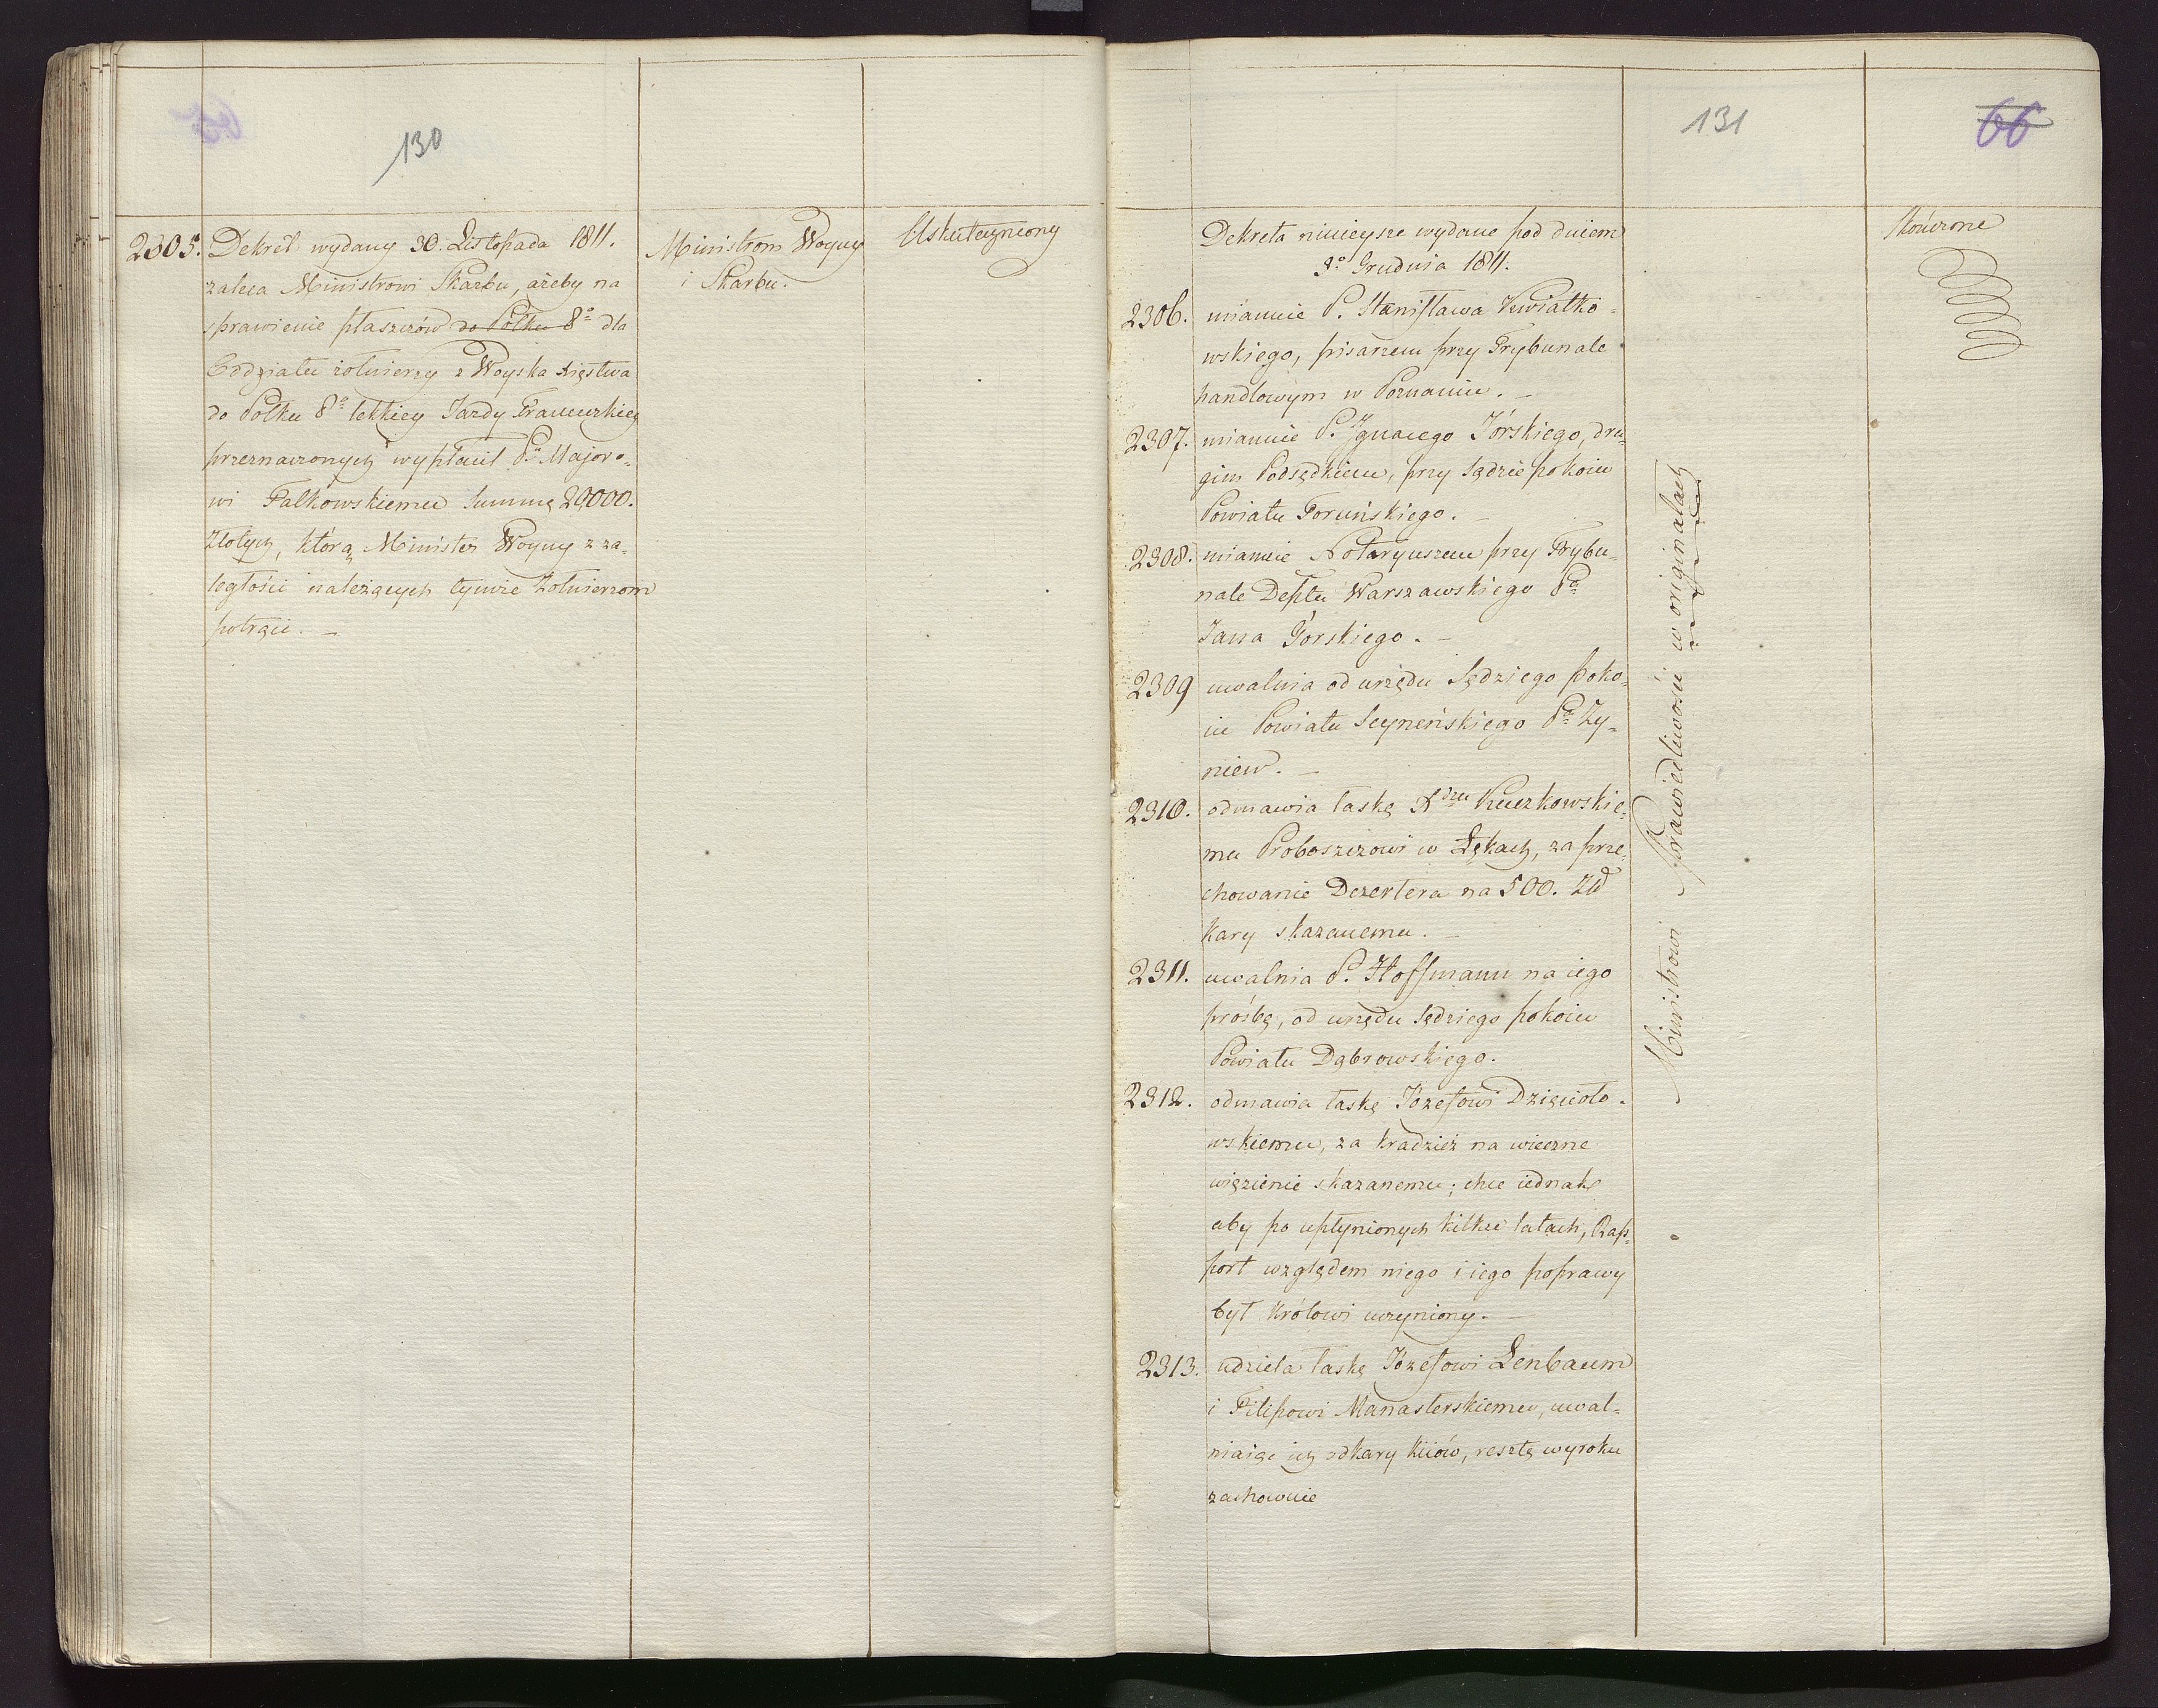 130
2305. Dekret wydany 30. Listopada 1811.
zaleca Ministrowi Skarbu, ażeby na
sprawienie płaszczów do Połku 8º dla
Oddziału żołnierzy z Woyska Xięstwa
do Połku 8º lekkiey Jazdy Francuzkiey
przeznaczonych wypłacił Pu Majoro-
wi Falkowskiemu Summę 29000.
Złotych, którą Minister Woyny z za-
ległości należących tymże Żołnierzom
potrąci. —
Ministrom Woyny
i Skarbu. —
Uskuteczniony
131
66
Dekreta nineysze wydane pod dniem
3º Grudnia 1811.
2306. mianuie P. Stanisława Kwiatko-
wskiego, pisarzem przy Trybunale
handlowym w Poznaniu. —
2307. mianuie P. Ignacego Jórskiego, dru-
gim Podsędkiem, przy Sądzie pokoiu
Powiatu Toruńskiego. —
2308. mianuie Notaryuszem przy Trybu-
nale Deptu Warszawskiego Pa
Jana Górskiego. —
2309 uwalnia od urzędu Sędziego poko-
iu Powiatu Seyneńskiego Pa Zy-
niew. —
2310. odmawia łaskę Xdzu Kuczkowskie-
mu Proboszczowi w Łękach, za prze-
chowanie Dezertera na 500. Zł
kary skazanemu. —
2311. uwalnia P. Hoffmann na iego
prośbę, od urzędu Sędziego pokoiu
Powiatu Dąbrowskiego.
2312. odmawia łaskę Józefowi Dzięcioło-
wskiemu, za kradzież na wieczne
więzienie skazanemu; chce iednak
aby po upłynionych kilku latach, Rap-
port względem niego i iego poprawy
był Królowi uczyniony. —
2313. udziela łaskę Józefowi Lenbaum
i Filipowi Manasterskiemu, uwal-
niaiąc ich od kary kiiów, resztę wyroku
zachowuie
Ministrowi Sprawiedliwości w originałach
Skończone